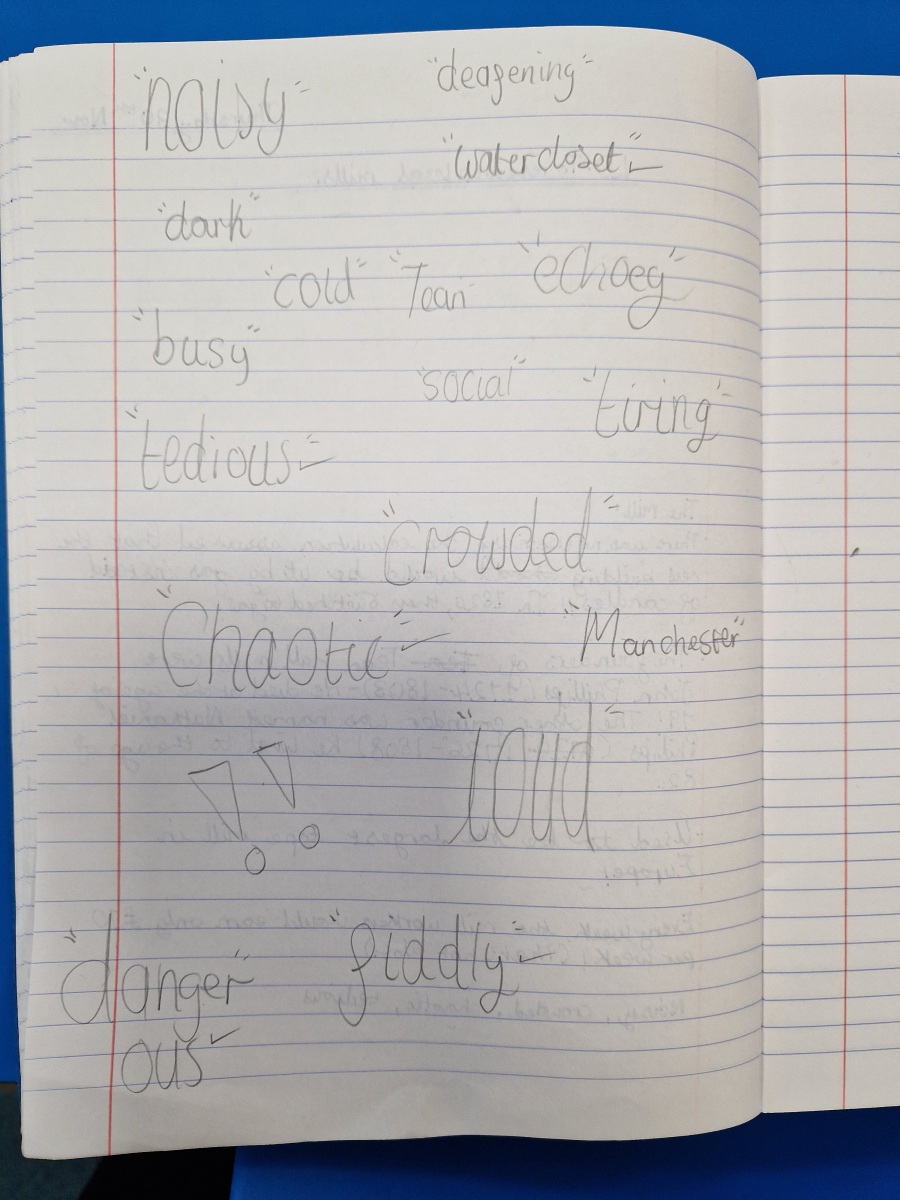 "noisy"
"deafening"
"water closet"
"dark"
"cold" "Tean" "echoey"
"busy"
"social" "tiring"
"tedious"
"Crowded"
"Chaotic" "Manchester"
!! "loud"
"danger
ous" "fiddly"